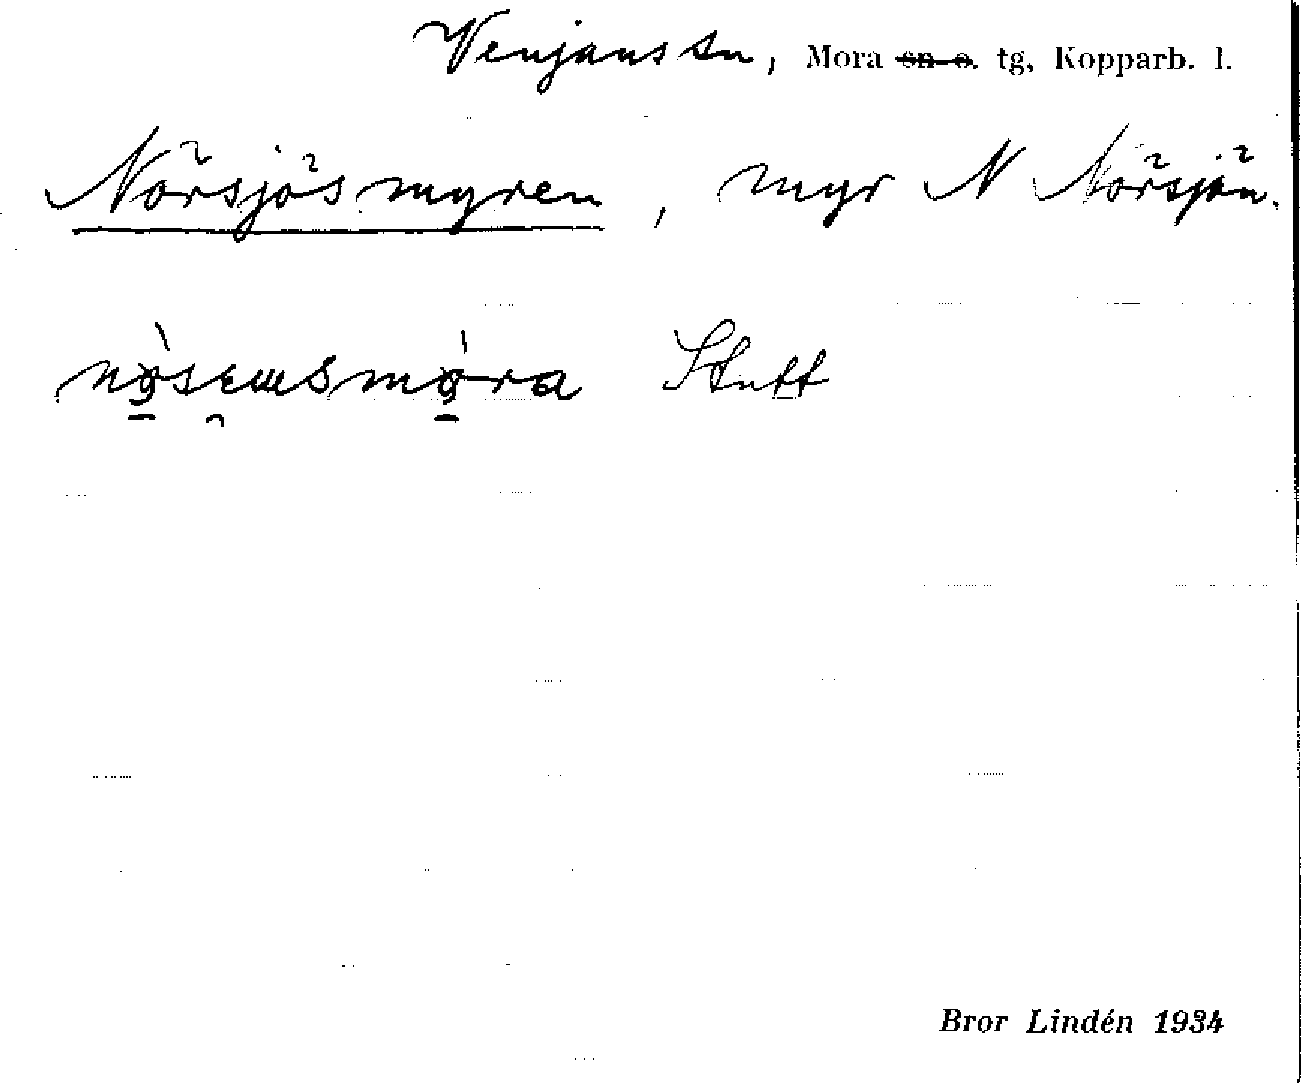 Venjans sn, Mora sn o. tg, Kopparb. l.
Nörsjösmyren, myr N Nörsjön.
Stutt
Bror Lindén 1934